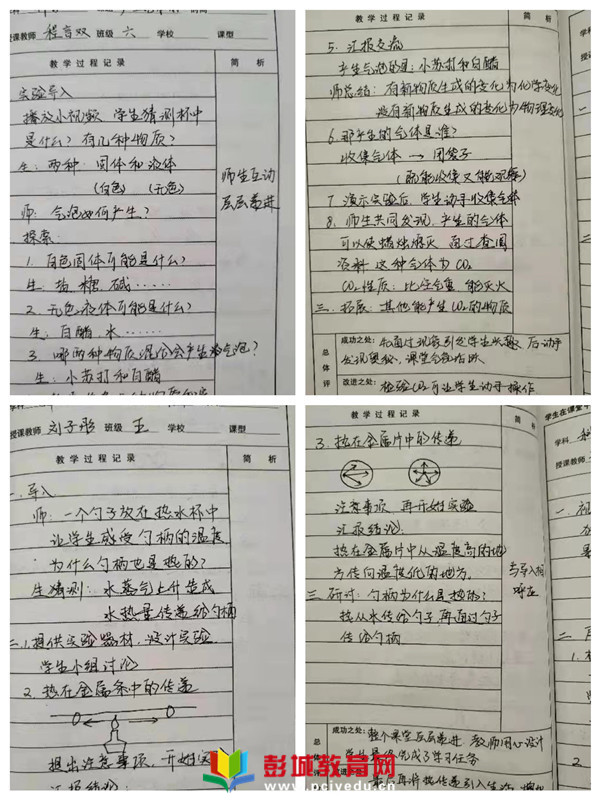 授课教师 程言双 班级 六 学校 课型
教学过程记录 简析
实验导入
播放小视频 学生猜测杯中
是什么？有几种物质？
生：两种 固体和液体
(白色) (无色)
师：气泡如何产生？
探索：
1. 白色固体可能是什么？
生：盐、糖、碱……
2. 无色液体可能是什么？
生：白醋、水……
3. 哪两种物质混合会产生气泡？
生：小苏打和白醋
师生互动
层层递进
教学过程记录 简析
5. 汇报交流
产生气泡的是：小苏打和白醋
师总结：有新物质生成的变化为化学变化
没有新物质生成的变化为物理变化
6. 那产生的气体是谁？
收集气体 → 用袋子
(既能收集又能观察)
7. 演示实验后，学生动手收集气体
8. 师生共同发现，产生的气体
可以使蜡烛熄灭 通过查阅
资料 这种气体为CO₂
CO₂性质：比空气重 能灭火
三、拓展：其他能产生CO₂的物质
总体评
成功之处：先通过观察引发学生兴趣，后动手
发现奥秘，课堂气氛活跃
改进之处：检验CO₂可让学生动手操作
授课教师 刘子彤 班级 五 学校 课型
教学过程记录 简析
一、导入
师：一个勺子放在热水杯中
让学生感受勺柄的温度
为什么勺柄也是热的？
生猜测：水蒸气上升造成
水热量传递给勺柄
二、1. 提供实验器材，设计实验
学生小组讨论
2. 热在金属条中的传递
提出注意事项，开始实
汇报结论：
教学过程记录 简
3. 热在金属片中的传递
注意事项 再开始实验
汇报结论：
热在金属片中从温度高的地
方传向温度低的地方
三、研讨：勺柄为什么是热的？
热从水传给勺子，再通过勺子
传给勺柄
与导入相
呼应
总体评
成功之处：整个课堂层层递进 教师用心设计
学生最终完成了学习任务
学生在课堂
学科
授课教师
彭城教育网
www.pcjyedu.cn